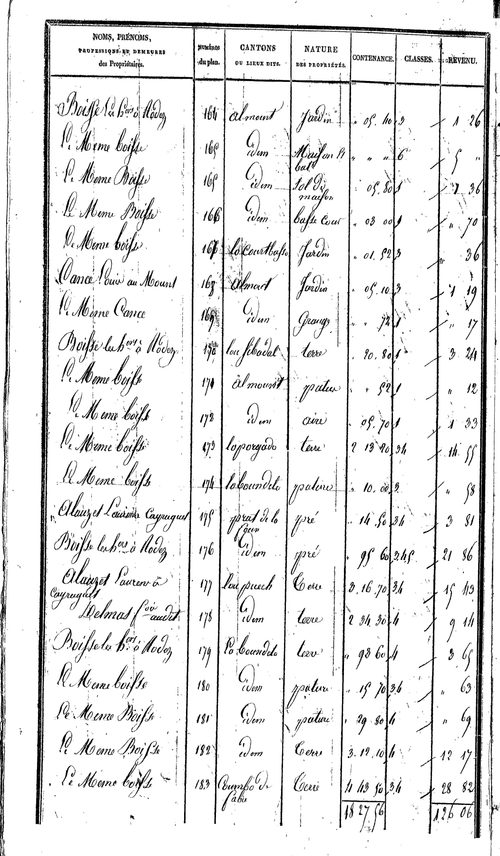 NOMS, PRÉNOMS, PROFESSIONS ET DEMEURES des Propriétaires. | du plan. | CANTONS OU LIEUX DITS. | NATURE DES PROPRIÉTÉS. | CONTENANCE. | CLASSES. | REVENU.
Boisse les hers à Rodez 164 almount Jardin " 05. 40 3 1 26
Le Meme boisse 165 idem Maison et " " " 6 5 "
Le Meme Boisse 165 idem Sol de maison 05. 80 1 1 36
Le Meme Boisse 166 idem basse cour " 03 00 1 " 70
Le Meme boisse 167 la courtbasse Jardin " 01. 52 3 " 36
Cance Louis au Mount 168 almont Jardin " 05. 10 3 1 19
Le Meme Cance 169 idem Grange " " 72 1 " 17
Boisse les hers à Rodez 170 lou sibadal terre " 20. 80 1 3 24
Le Meme boisse 171 almount pature " " 52 1 " 12
Le Meme boisse 172 idem aire " 05. 70 1 1 33
Le Meme boisse 173 terre 2 13 20 34 14 55
Le Meme boisse 174 laboundelo pature " 10. 00 3 " 58
Alauzet Laurens Cayraguet 175 prat de lo pré " 14 50 34 3 81
Boisse les hers à Rodez 176 idem pré " 95 60 345 21 86
Alauzet Laurens à Cayraguet 177 loupuech Terre 3. 16. 70 34 15 43
Delmas fois audit 178 idem terre 2 34 30 4 9 14
Boisse les hers à Rodez 179 la boundelo terre " 93 60 4 3 65
Le Meme boisse 180 idem pature " 15. 70 34 " 63
Le Meme Boisse 181 idem pature " 29. 80 4 " 69
Le Meme Boisse 182 idem Terre 3. 12. 10 4 12 17
Le Meme boisse 183 Coumbo de Terre 4 43 50 34 28 82
18 27 56 126 06